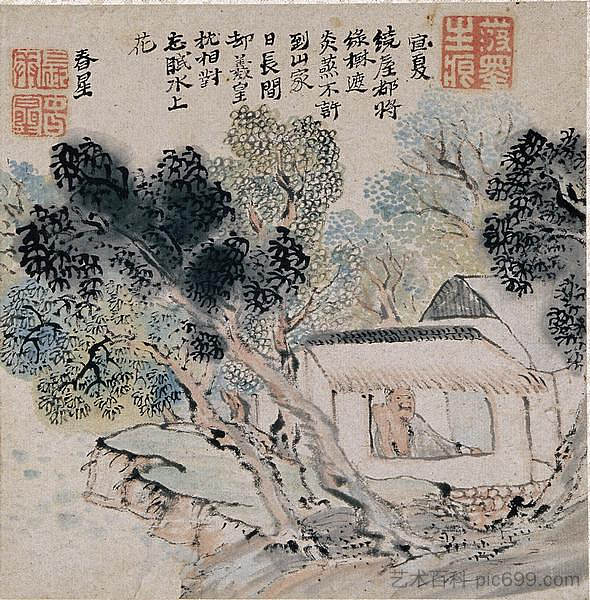 宜夏
繞屋都將
綠樹遮
炎蒸不許
到山家
日長間
却羲皇
枕相對
忘眠水上
花
春星
潑墨生痕
艺术百科 pic699.com